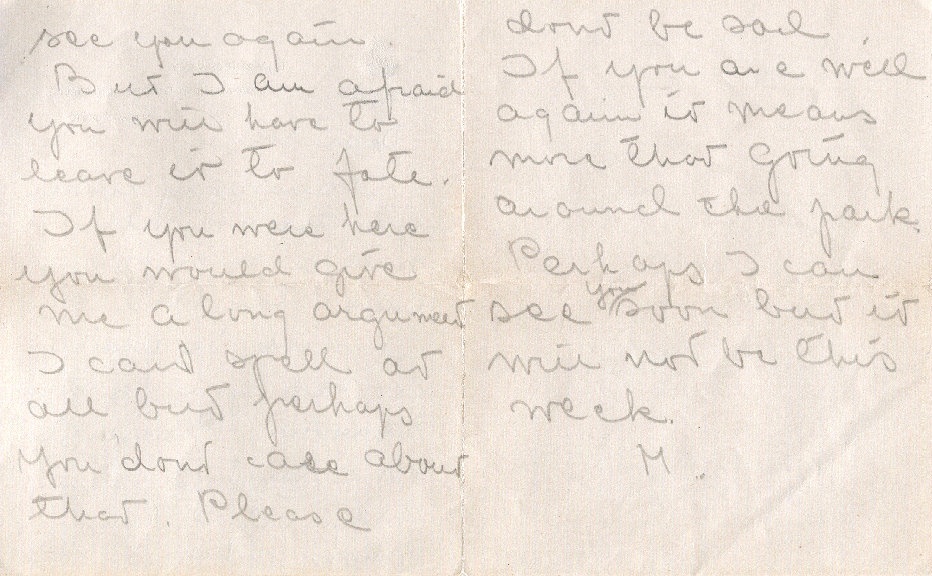 see you again.
But I am afraid
you will have to
leave it to fate.
If you were here
you would give
me a long argument
I can't spell at
all but perhaps
you dont care about
that. Please
dont be sad.
If you are well
again it means
more that going
around the park.
Perhaps I can
see you soon but it
will not be this
week.
M.